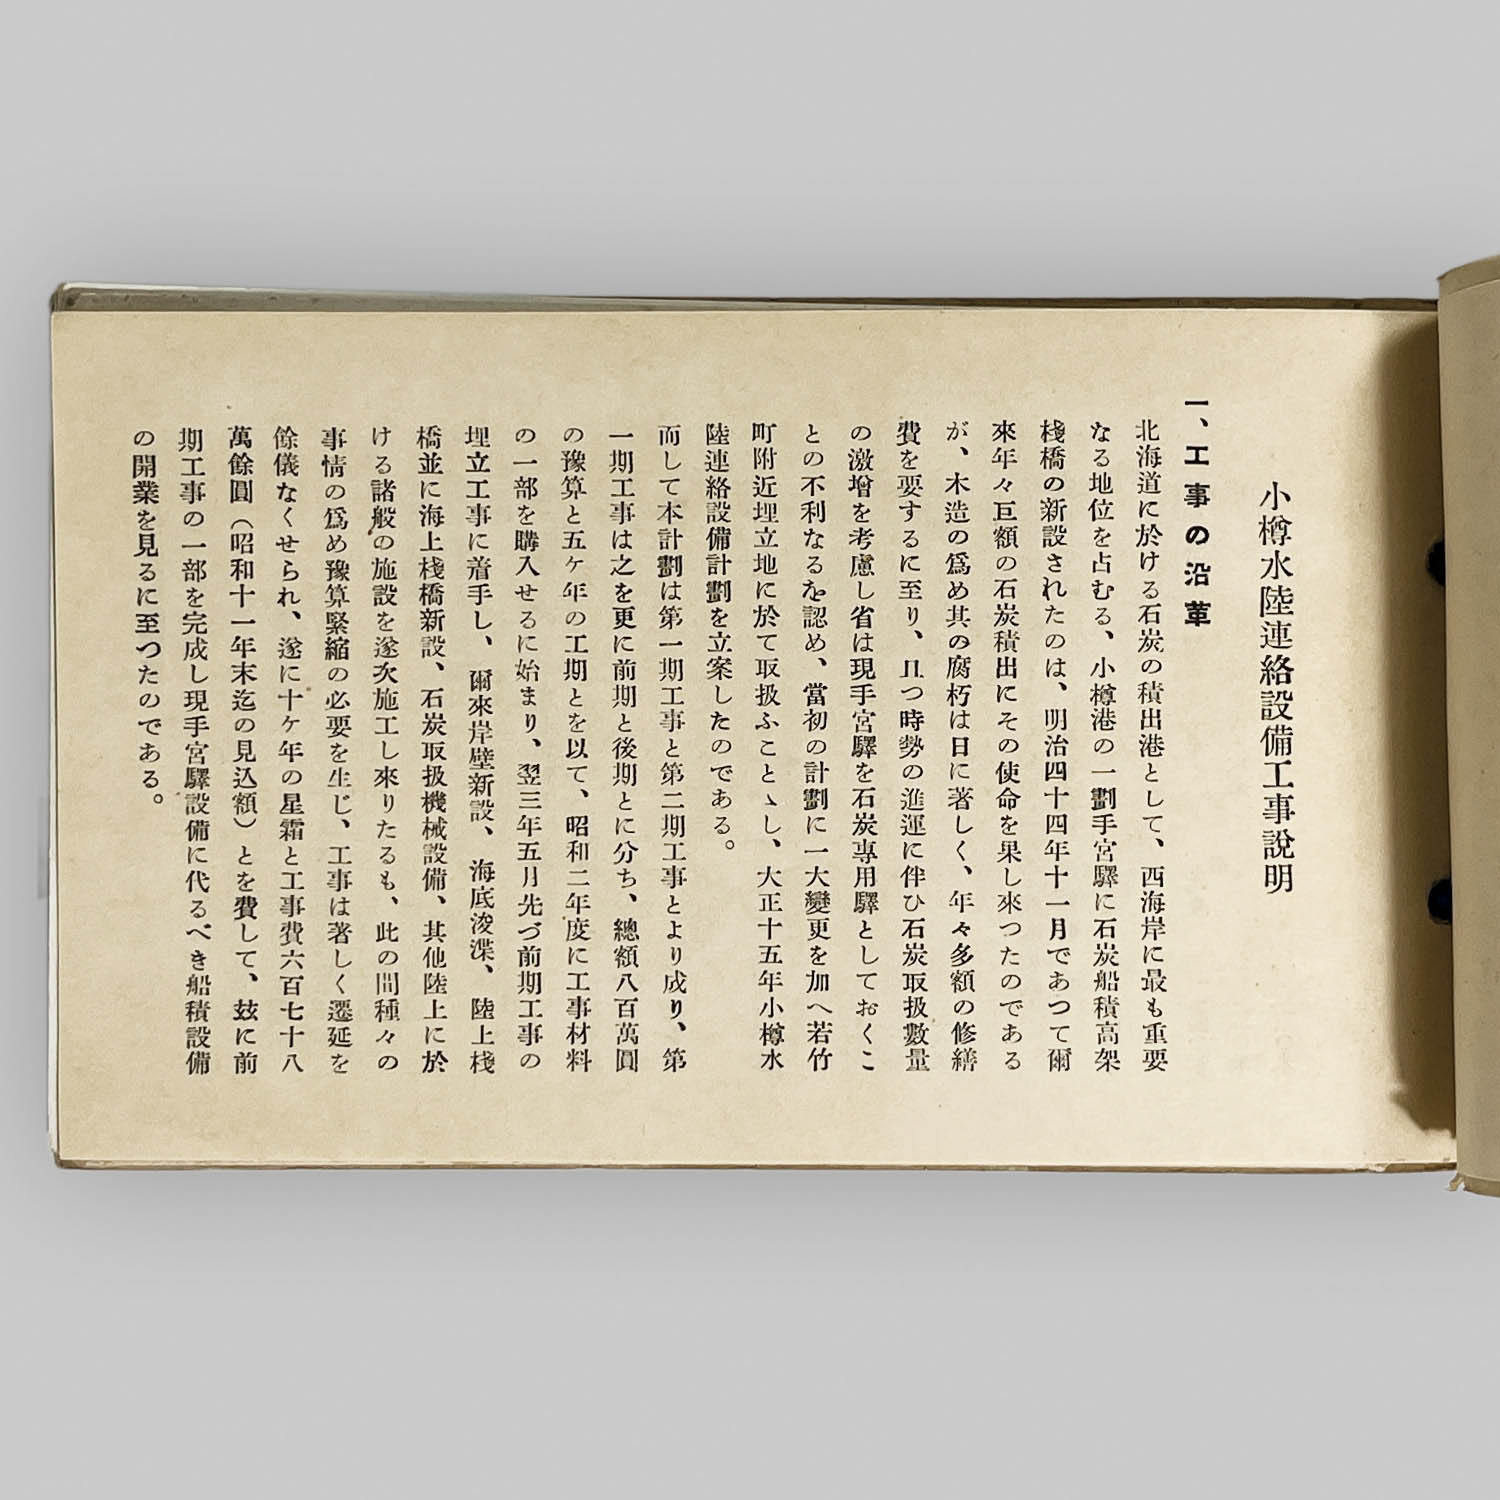 小樽水陸連絡設備工事說明
一、工事の沿革
北海道に於ける石炭の積出港として、西海岸に最も重要
なる地位を占むる、小樽港の一劃手宮驛に石炭船積高架
棧橋の新設されたのは、明治四十四年十一月であつて爾
來年々巨額の石炭積出にその使命を果し來つたのである
が、木造の爲め其の腐朽は日に著しく、年々多額の修繕
費を要するに至り、且つ時勢の進運に伴ひ石炭取扱數量
の激增を考慮し省は現手宮驛を石炭專用驛としておくこ
との不利なるを認め、當初の計劃に一大變更を加へ若竹
町附近埋立地に於て取扱ふことゝし、大正十五年小樽水
陸連絡設備計劃を立案したのである。
而して本計劃は第一期工事と第二期工事とより成り、第
一期工事は之を更に前期と後期とに分ち、總額八百萬圓
の豫算と五ケ年の工期とを以て、昭和二年度に工事材料
の一部を購入せるに始まり、翌三年五月先づ前期工事の
埋立工事に着手し、爾來岸壁新設、海底浚渫、陸上棧
橋並に海上棧橋新設、石炭取扱機械設備、其他陸上に於
ける諸般の施設を遂次施工し來りたるも、此の間種々の
事情の爲め豫算緊縮の必要を生じ、工事は著しく遷延を
餘儀なくせられ、遂に十ケ年の星霜と工事費六百七十八
萬餘圓（昭和十一年末迄の見込額）とを費して、玆に前
期工事の一部を完成し現手宮驛設備に代るべき船積設備
の開業を見るに至つたのである。